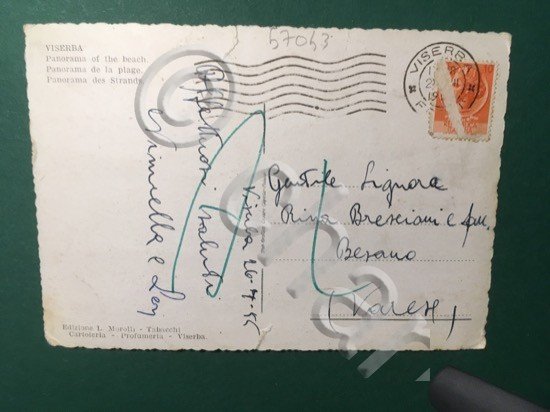 57053
VISERBA
Panorama of the beach.
Panorama de la plage.
Panorama des Strandes
VISERBA
Affettuosi saluti
Viserba 26-7-56
Gentile Signora
Rina Bresciani e fam.
Besano
(Varese)
Edizione L. Morolli - Tabacchi
Cartoleria - Profumeria - Viserba.